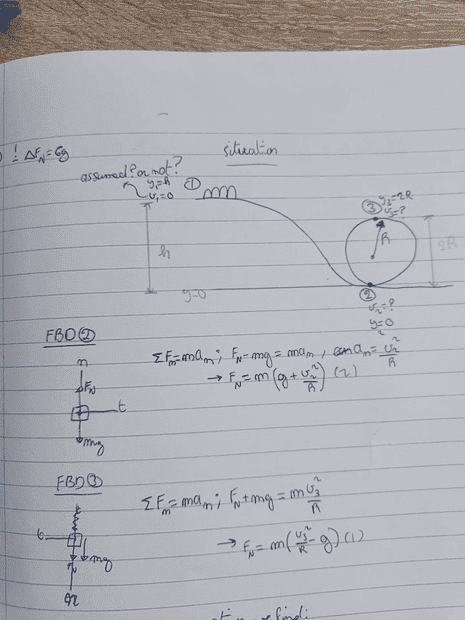 ! ΔF_N = 6g
situation
assumed? or not?
① y₁=h
v₁=0
③ y₃=2R
v₃=?
R
2R
h
y=0
②
v₂=?
y=0
FBD②
n
F_N
t
mg
ΣF_n=ma_n ; F_N-mg=ma_n , a_n=v₂²/R
→ F_N=m(g+v₂²/R) (2)
FBD③
t
mg
n
ΣF_n=ma_n ; F_N+mg=m v₃²/R
→ F_N=m(v₃²/R-g) (1)
we find: